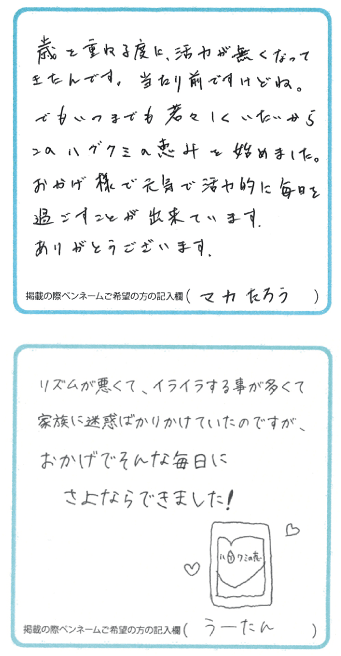 歳を重ねる度に、活力が無くなって
きたんです。当たり前ですけどね。
でもいつまでも若々しくいたいから
このハグクミの恵みを始めました。
おかげ様で元気で活力的に毎日を
過ごすことが出来ています。
ありがとうございます。
掲載の際ペンネームご希望の方の記入欄(マカたろう)
リズムが悪くて、イライラする事が多くて
家族に迷惑ばかりかけていたのですが、
おかげでそんな毎日に
さよならできました!
ハグクミの恵
掲載の際ペンネームご希望の方の記入欄(うーたん)